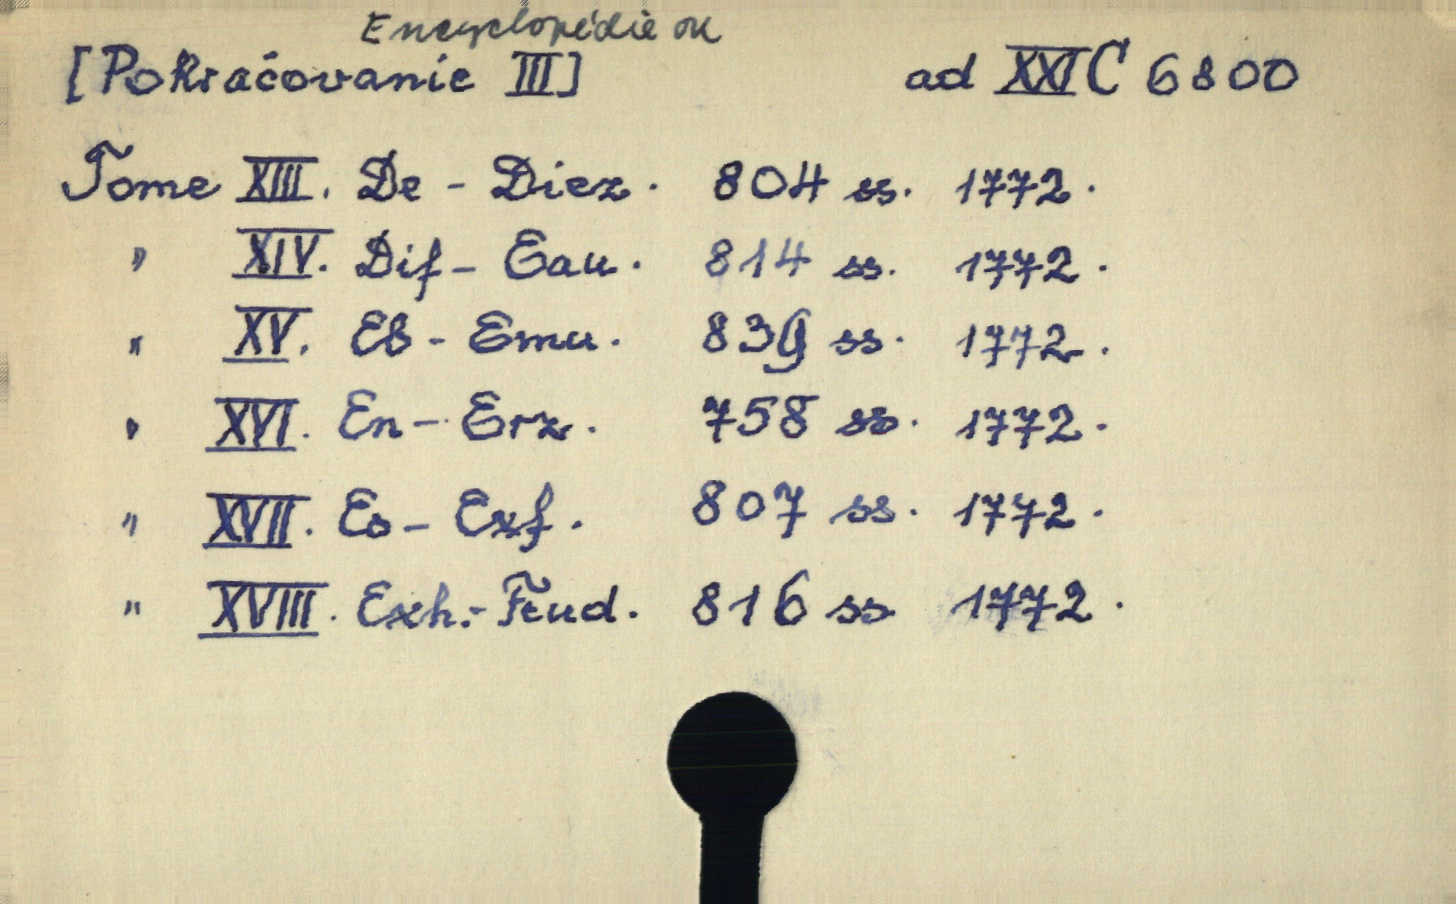 Encyclopédie ou
[Pokračovanie III] ad XXI C 6800
Tome XIII. De - Diez. 804 ss. 1772.
" XIV. Dif - Eau. 814 ss. 1772.
" XV. Eb - Emu. 839 ss. 1772.
" XVI. En - Erz. 758 ss. 1772.
" XVII. Es - Exf. 807 ss. 1772.
" XVIII. Exh. - Feud. 816 ss. 1772.